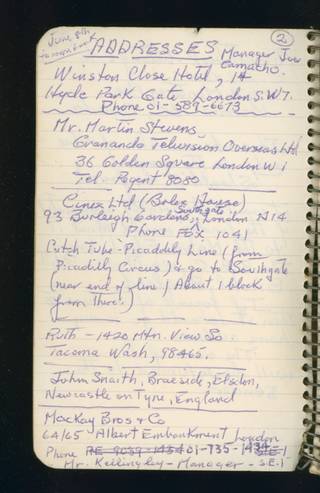 June 8th
to
2
ADDRESSES
Manager Joe
Camacho.
Winston Close Hotel, 14
Hyde Park Gate, London S.W7.
Phone 01-589-6673
Mr. Martin Stevens
Granada Television Overseas Ltd
36 Golden Square London W1
Tel Regent 8080
Cinex Ltd (Bolex House)
Southgate
93 Burleigh Gardens, London N14
Phone FOX 1041
Catch Tube - Picadilly Line (from
Picadilly Circus) & go to Southgate
(near end of line) About 1 block
from There.)
Ruth - 1420 Mtn. View So.
Tacoma Wash, 98465.
John Snaith, Braeside, Elsdon,
Newcastle on Tyne, England
MacKay Bros & Co
64/65 Albert Embankment London
S.E.1
Phone 01-735-1434
Mr. Kellingley - Manager - S.E.1